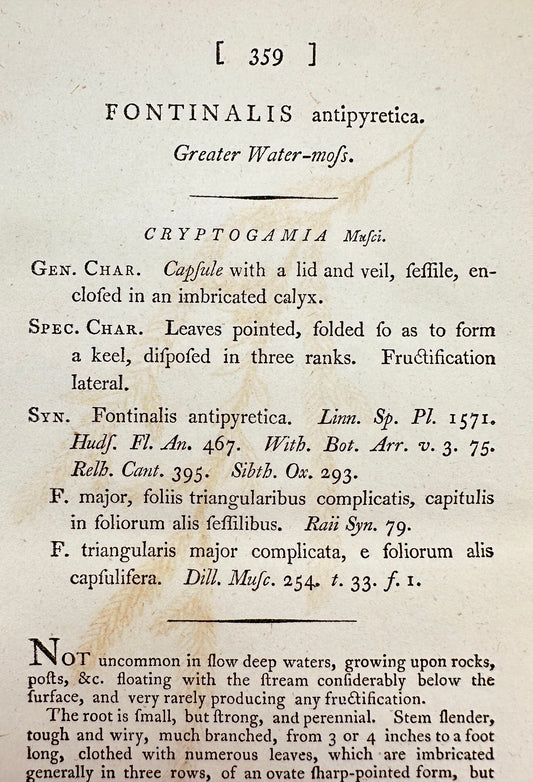 [ 359 ]
FONTINALIS antipyretica.
Greater Water-moſs.
CRYPTOGAMIA Muſci.
GEN. CHAR. Capſule with a lid and veil, ſeſſile, en-
cloſed in an imbricated calyx.
SPEC. CHAR. Leaves pointed, folded ſo as to form
a keel, diſpoſed in three ranks. Fructification
lateral.
SYN. Fontinalis antipyretica. Linn. Sp. Pl. 1571.
Hudſ. Fl. An. 467. With. Bot. Arr. v. 3. 75.
Relh. Cant. 395. Sibth. Ox. 293.
F. major, foliis triangularibus complicatis, capitulis
in foliorum alis ſeſſilibus. Raii Syn. 79.
F. triangularis major complicata, e foliorum alis
capſulifera. Dill. Muſc. 254. t. 33. f. 1.
NOT uncommon in ſlow deep waters, growing upon rocks,
poſts, &c. floating with the ſtream conſiderably below the
ſurface, and very rarely producing any fructification.
The root is ſmall, but ſtrong, and perennial. Stem ſlender,
tough and wiry, much branched, from 3 or 4 inches to a foot
long, clothed with numerous leaves, which are imbricated
generally in three rows, of an ovate ſharp-pointed form, but